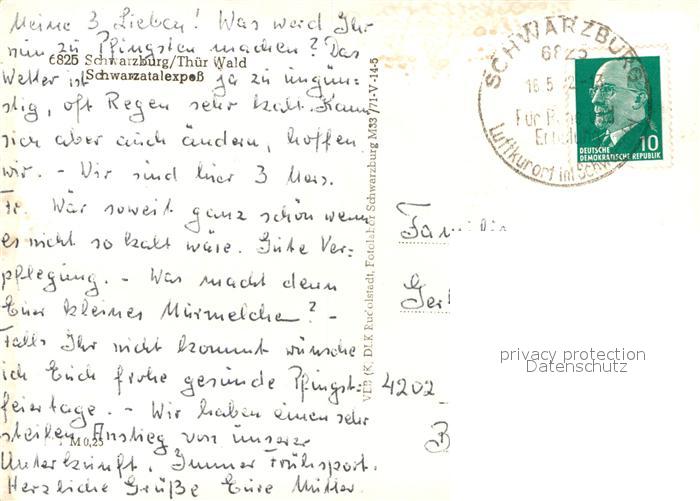 Meine 3 Lieben! Was werd Ihr
nun zu Pfingsten machen? Das
6825 Schwarzburg/Thür Wald
Schwarzatalexpreß
Wetter ist ja zu ungün-
stig, oft Regen sehr kalt. Kann
sich aber auch ändern, hoffen
wir. - Wir sind hier 3 Mers.
Fr. Wär soweit ganz schön wenn
es nicht so kalt wäre. Gute Ver-
pflegung. - Was macht denn
Euer kleines Murmelchen? -
Falls Ihr nicht kommt wünsche
ich Euch frohe gesunde Pfingst-
feiertage. - Wir haben einen sehr
steilen Anstieg von unserer
M 0,25
Unterkunft. Immer Frühsport.
Herzliche Grüße Eure Mutter.
VEB (K) DLK Rudolstadt, Fotolabor Schwarzburg M33 /71-V-14-5
SCHWARZBURG
6825
16.5
Luftkurort im Schw
DEUTSCHE
DEMOKRATISCHE REPUBLIK
10
Familie
4202
privacy protection
Datenschutz